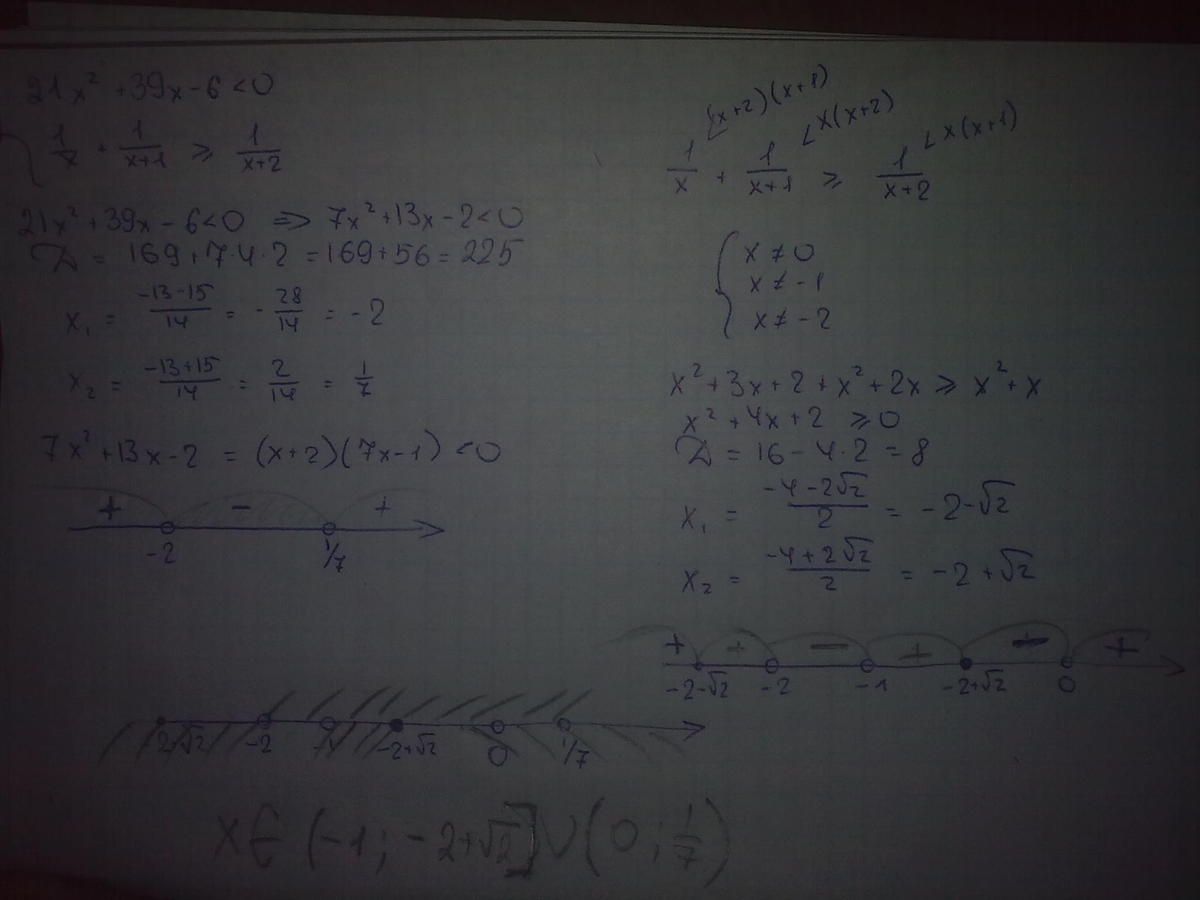 21x² + 39x - 6 < 0
1/x + 1/(x+1) ⩾ 1/(x+2)
21x² + 39x - 6 < 0 => 7x² + 13x - 2 < 0
D = 169 + 7·4·2 = 169 + 56 = 225
x₁ = (-13-15)/14 = -28/14 = -2
x₂ = (-13+15)/14 = 2/14 = 1/7
7x² + 13x - 2 = (x+2)(7x-1) < 0
+ - +
-2 1/7
(x+2)(x+1) x(x+2) x(x+1)
1/x + 1/(x+1) ⩾ 1/(x+2)
{ x ≠ 0
x ≠ -1
x ≠ -2
x² + 3x + 2 + x² + 2x ⩾ x² + x
x² + 4x + 2 ⩾ 0
D = 16 - 4·2 = 8
x₁ = (-4-2√2)/2 = -2-√2
x₂ = (-4+2√2)/2 = -2+√2
+ + - +  +
-2-√2 -2 -1 -2+√2 0
-2 -2+√2 0 1/7
x ∈ (-1; -2+√2] ∪ (0; 1/7)